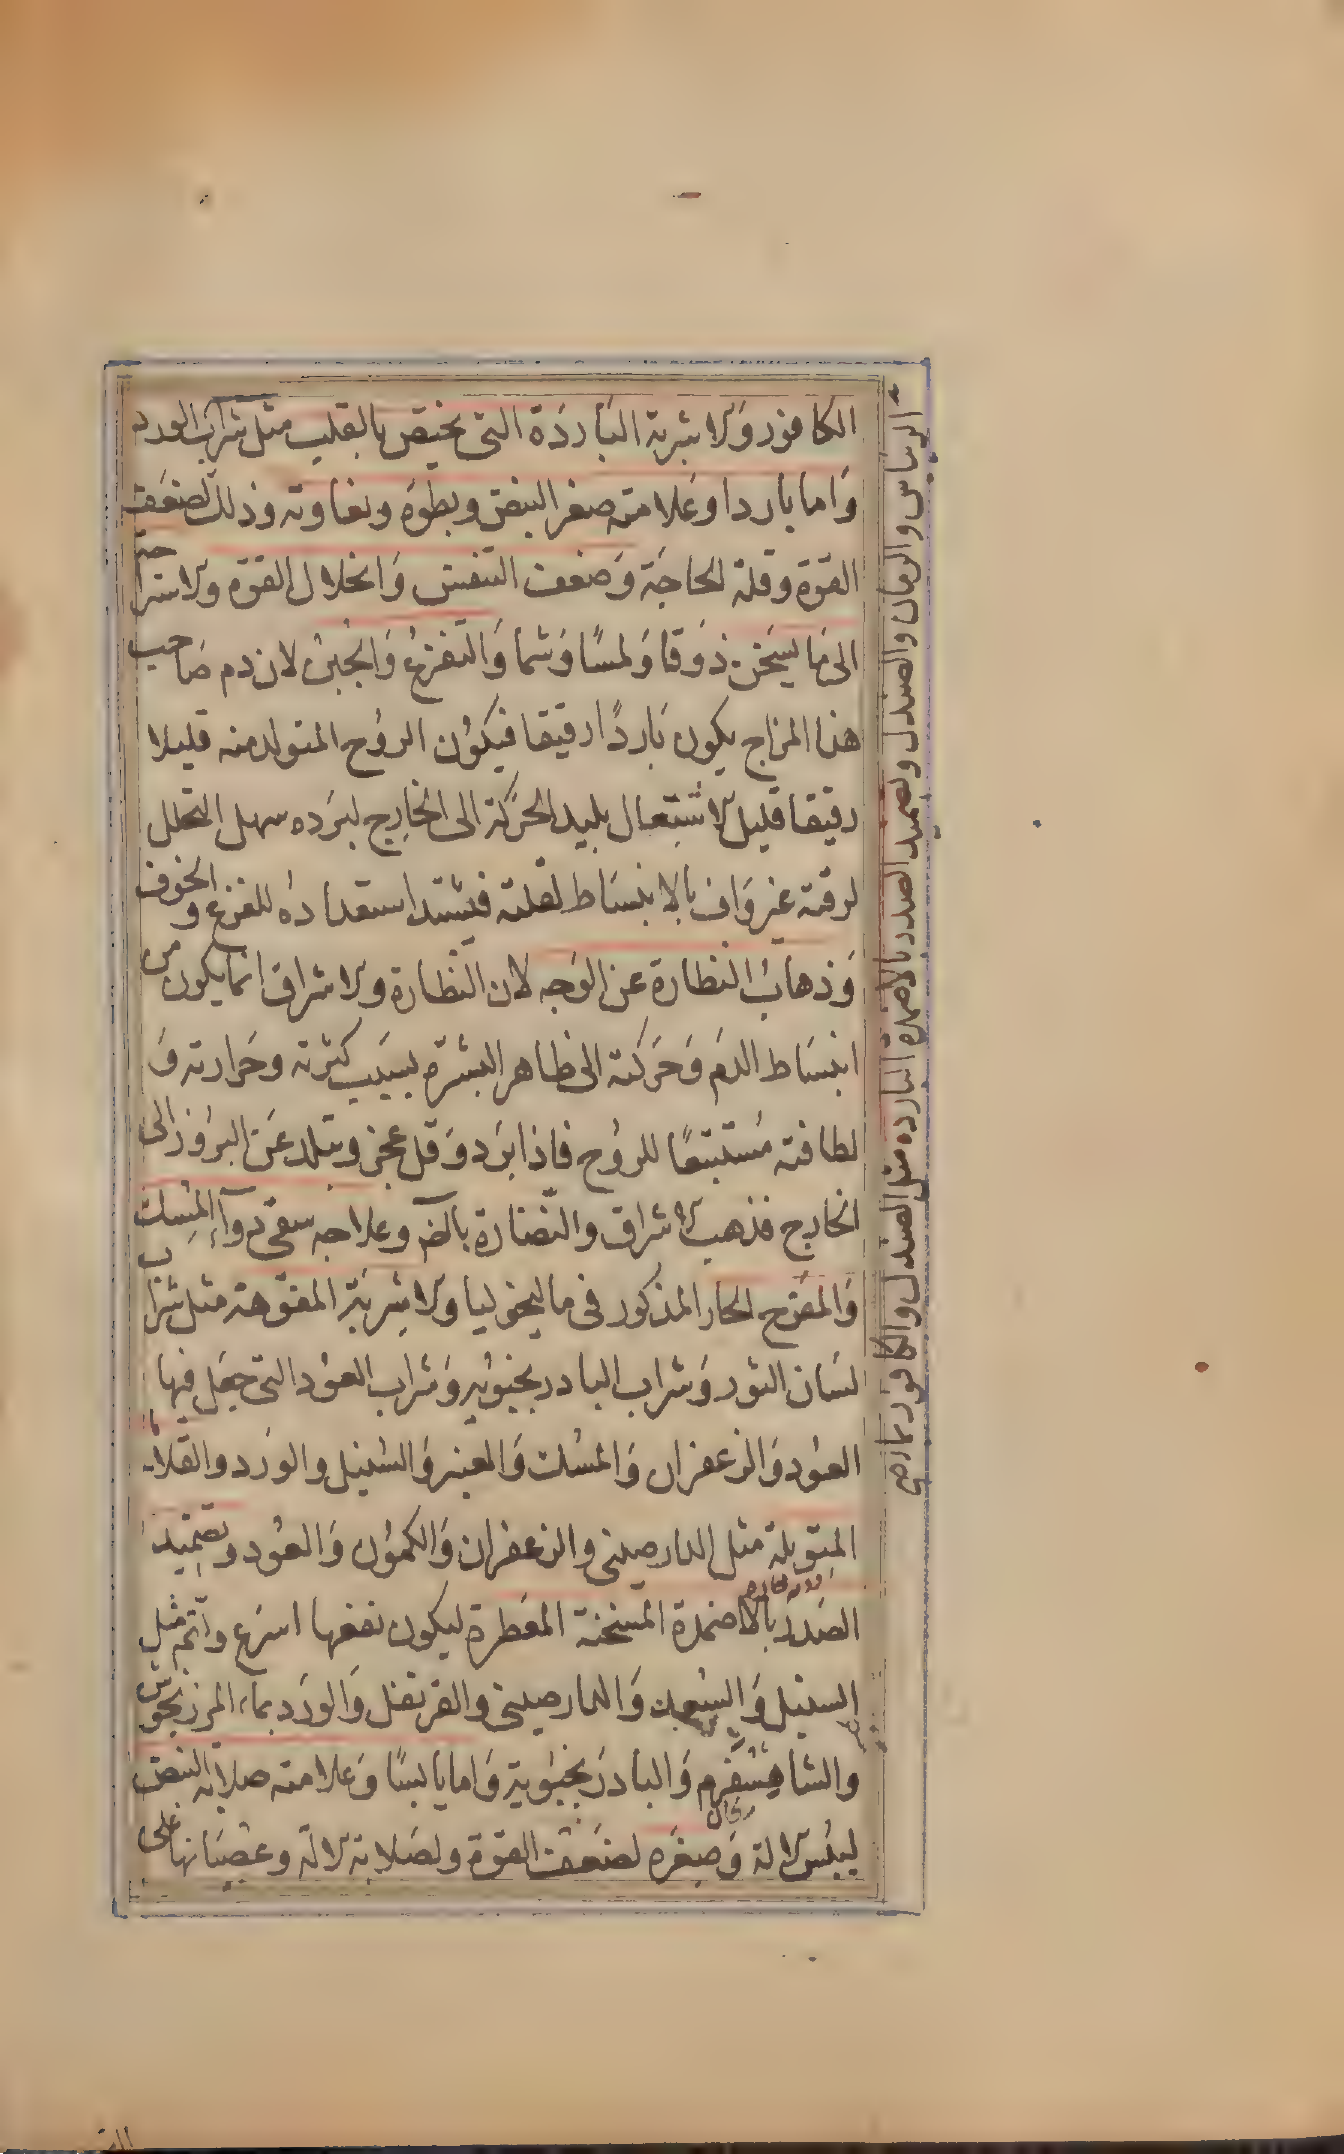 الكافور وَالاشربة البَارِدَة التى يختص بالقلب مثل شراب الورد
وَاما باردا وعَلامته صغر النبض وبطوءه وتفاوته وذلك لضعف
القوّة وقلة الحاجَة وَضعف التنفس وَانحلال القوّة والاستراحة
الى مَا يسَخن ذوَقا وَلمسًا وَشما وَالتفزعُ وَالجبنُ لان دم صَاحب
هذا المزاج يكون بَاردًا رقيقا فيكوُن الروُح المتولد منه قليلا
رقيقا قليل الاشتعال بليد الحرَكة الى الخارِج لبرَده سهل التحلل
لرقته غير وَاف بالانبسَاط لقلته فيشتد استعدادهُ للفزع والخوف
وَذهابُ النظارة عن الوَجه لان النظارة والاشراق انما يكون من
انبسَاط الدَم وَحَركته الى ظاهر البشرَة بسبَب كثرته وحَرارته وَ
لطافته مُستتبعًا للروُح فاذا برَد وَقل عجز وتبلد عَن البرُوز الى
الخارج فذهب الاشراق والنضارة بالضَم وعلاجه سقى دوآء المِسك
وَالمفرَح الحار المذكور فى ماليخوليا والاشربَة المفوّحة مثل شراب
لسَان الثور وَشراب البادرنجبوُيه وَشراب العوُد التى جعَل فيها
العوُد وَالزعفران وَالمسُك وَالعنبر وَالسُنبل والورَد والقلايا
المتوبلة مثل الدارصينى والزعفران وَالكموُن وَالعوُد وتضميد
الصَدر بالاضمدة المسَخنة المعَطرة ليكون نفعها اسرَع وَاتم مثل
السنبل وَالسُعد وَالدارصينى والقرنفل وَالورَد بماء المرزنجوش
والشاهِسْفرم وَالبادرَنجبوُية وَاما يابسًا وَعَلامته صلابة النبض
ليبُس الالة وَصِغَره لضعَف القوّة ولصَلابة الالة وعصيَانها على
الريباس والرمان والصندل وتضميد الصدر بالاضمدة الباردة مثل الصندل والكافور